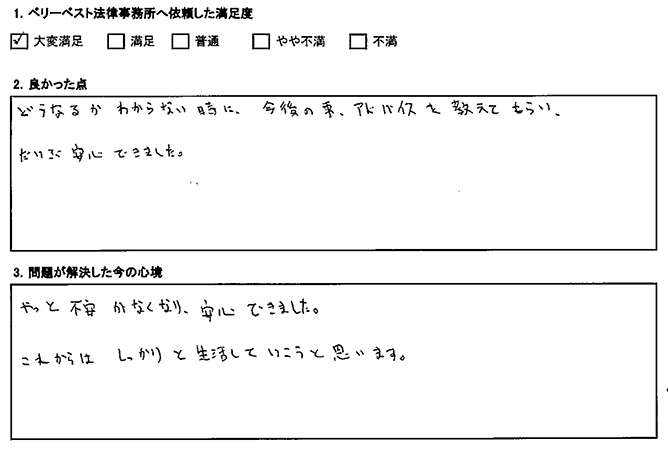 1. ベリーベスト法律事務所へ依頼した満足度
☑ 大変満足 □ 満足 □ 普通 □ やや不満 □ 不満
2. 良かった点
どうなるか わからない 時に、今後の事、アドバイス を 教えて もらい、
だいぶ 安心 できました。
3. 問題が解決した今の心境
やっと 不安 がなくなり、安心 できました。
これからは しっかり と 生活して いこうと 思います。